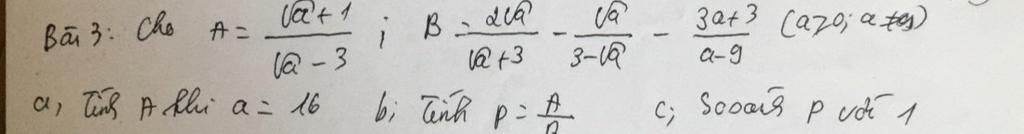 Bài 3: Cho A = (√a + 1)/(√a - 3) ; B = 2√a/(√a + 3) - √a/(3 - √a) - (3a + 3)/(a - 9) (a ≥ 0; a ≠ 9)
a, Tính A khi a = 16 b; Tính P = A/B c; So sánh P với 1